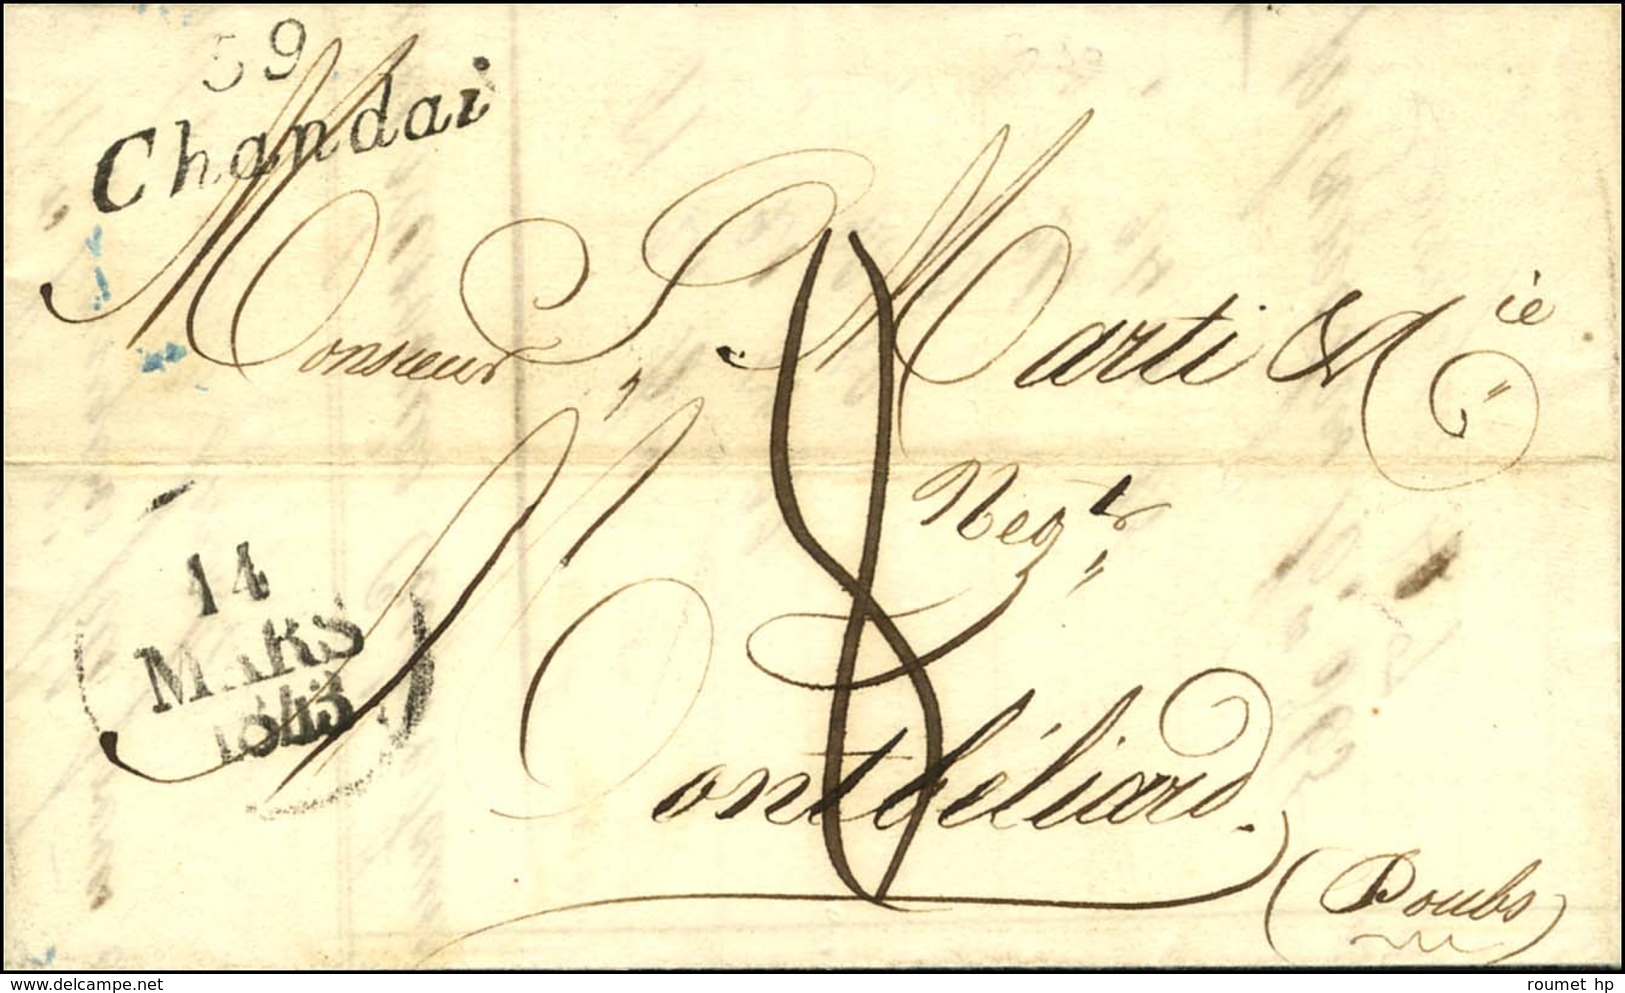 59
Chandai
Monsieur P. Marti & Cie
Negt
14
MARS
1843
Montbéliard.
(Doubs)
8
delcampe.net
roumet hp